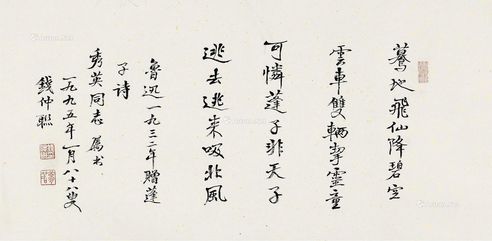 蓦地飛仙降碧空
雲車雙輛挈靈童
可憐蓬子非天子
逃去逃来吸北風
魯迅一九三二年贈蓬
子詩
秀英同志屬书
一九九五年一月八十八叟
錢仲聯